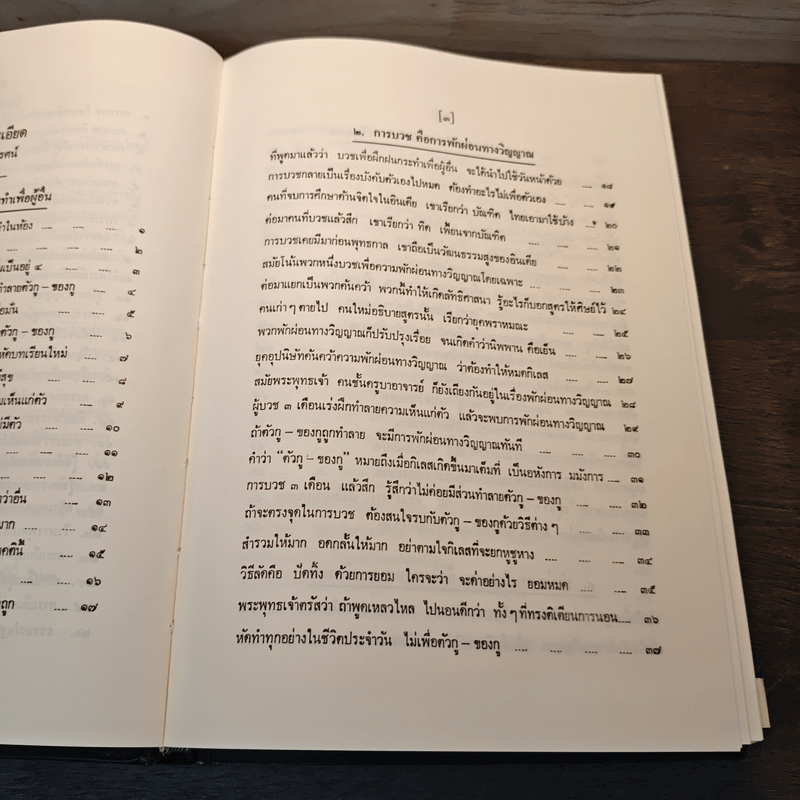 นเอียด
รศน์
ะทำเพื่อผู้อื่น
ในห้อง .... .... .... ๑
.... .... .... .... ๒
เป็นอยู่ ๔ .... .... ๓
ำลายตัวกู – ของกู .... ๔
อมัน .... .... .... ๕
ตัวกู – ของกู .... ๖
หัดบทเรียนใหม่ .... ๗
สุข .... .... .... ๘
มเห็นแก่ตัว .... .... ๙
มีตัว .... .... .... ๑๐
.... .... .... ๑๑
.... .... .... ๑๒
ว่าอื่น .... .... ๑๓
มาก .... .... .... ๑๔
คตินี้ .... .... ๑๕
.... .... .... ๑๖
ถูก .... .... ๑๗
[๓]
๒. การบวช คือการพักผ่อนทางวิญญาณ
ที่พูดมาแล้วว่า บวชเพื่อฝึกฝนกระทำเพื่อผู้อื่น จะได้นำไปใช้วันหน้าด้วย .... ๑๘
การบวชกลายเป็นเรื่องบังคับตัวเองไปหมด ต้องทำอะไรไม่เพื่อตัวเอง .... ๑๙
คนที่จบการศึกษาด้านจิตใจในอินเดีย เขาเรียกว่า บัณฑิต ไทยเอามาใช้บ้าง .... ๒๐
ต่อมาคนที่บวชแล้วสึก เขาเรียกว่า ทิด เพี้ยนจากบัณฑิต .... .... .... ๒๑
การบวชเคยมีมาก่อนพุทธกาล เขาถือเป็นวัฒนธรรมสูงของอินเดีย .... .... ๒๒
สมัยโน้นพวกหนึ่งบวชเพื่อความพักผ่อนทางวิญญาณโดยเฉพาะ .... .... ๒๓
ต่อมาแยกเป็นพวกค้นคว้า พวกนี้ทำให้เกิดลัทธิศาสนา รู้อะไรก็บอกสูตรให้ศิษย์ไว้ ๒๔
คนเก่าๆ ตายไป คนใหม่อธิบายสูตรนั้น เรียกว่ายุคพราหมณะ .... .... ๒๕
พวกพักผ่อนทางวิญญาณก็ปรับปรุงเรื่อย จนเกิดคำว่านิพพาน คือเย็น .... .... ๒๖
ยุคอุปนิษัทค้นคว้าความพักผ่อนทางวิญญาณ ว่าต้องทำให้หมดกิเลส .... .... ๒๗
สมัยพระพุทธเจ้า คนชั้นครูบาอาจารย์ ก็ยังเถียงกันอยู่ในเรื่องพักผ่อนทางวิญญาณ ๒๘
ผู้บวช ๓ เดือนเร่งฝึกทำลายความเห็นแก่ตัว แล้วจะพบการพักผ่อนทางวิญญาณ ๒๙
ถ้าตัวกู – ของกูถูกทำลาย จะมีการพักผ่อนทางวิญญาณทันที .... .... .... ๓๐
คำว่า “ตัวกู – ของกู” หมายถึงเมื่อกิเลสเกิดขึ้นมาเต็มที่ เป็นอหังการ มมังการ .... ๓๑
การบวช ๓ เดือน แล้วสึก รู้สึกว่าไม่ค่อยมีส่วนทำลายตัวกู – ของกู .... .... ๓๒
ถ้าจะตรงจุดในการบวช ต้องสนใจรบกับตัวกู – ของกูด้วยวิธีต่าง ๆ .... .... ๓๓
สำรวมให้มาก อดกลั้นให้มาก อย่าตามใจกิเลสที่จะยกหูชูหาง .... .... .... ๓๔
วิธีลัดคือ ปัดทิ้ง ด้วยการยอม ใครจะว่า จะด่าอย่างไร ยอมหมด .... .... ๓๕
พระพุทธเจ้าตรัสว่า ถ้าพูดเหลวไหล ไปนอนดีกว่า ทั้งๆ ที่ทรงติเตียนการนอน.... ๓๖
หัดทำทุกอย่างในชีวิตประจำวัน ไม่เพื่อตัวกู – ของกู .... .... .... .... ๓๗